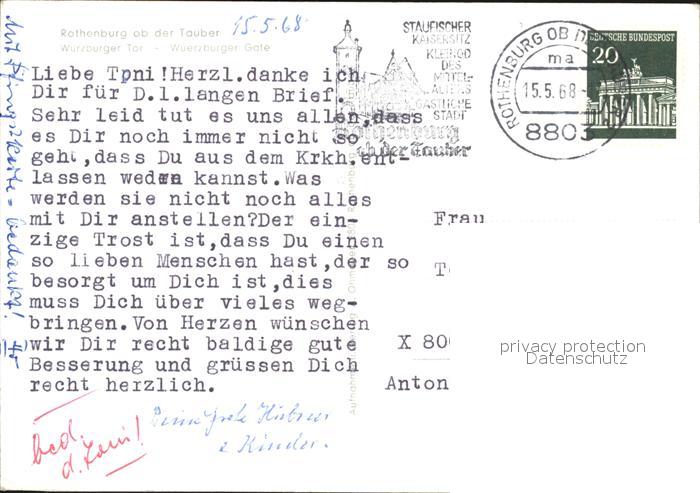 Rothenburg ob der Tauber 15.5.68
Würzburger Tor - Wuerzburger Gate
STAUFISCHER
KAISERSITZ
KLEINOD
DES
MITTEL-
ALTERS
GASTLICHE
STADT
Rothenburg
ob der Tauber
ROTHENBURG OB D
ma
15.5.68
8803
DEUTSCHE BUNDESPOST
20
Liebe Toni!Herzl.danke ich
Dir für D.l.langen Brief.
Sehr leid tut es uns allen,dass
es Dir noch immer nicht so
geht,dass Du aus dem Krkh.ent-
lassen weden kannst.Was
werden sie nicht noch alles
mit Dir anstellen?Der ein-
zige Trost ist,dass Du einen
so lieben Menschen hast,der so
besorgt um Dich ist,dies
muss Dich über vieles weg-
bringen.Von Herzen wünschen
wir Dir recht baldige gute
Besserung und grüssen Dich
recht herzlich.
Deine Grete
e Kinder.
bed.
d. Toni!
Frau
T
X 80
Anton
privacy protection
Datenschutz